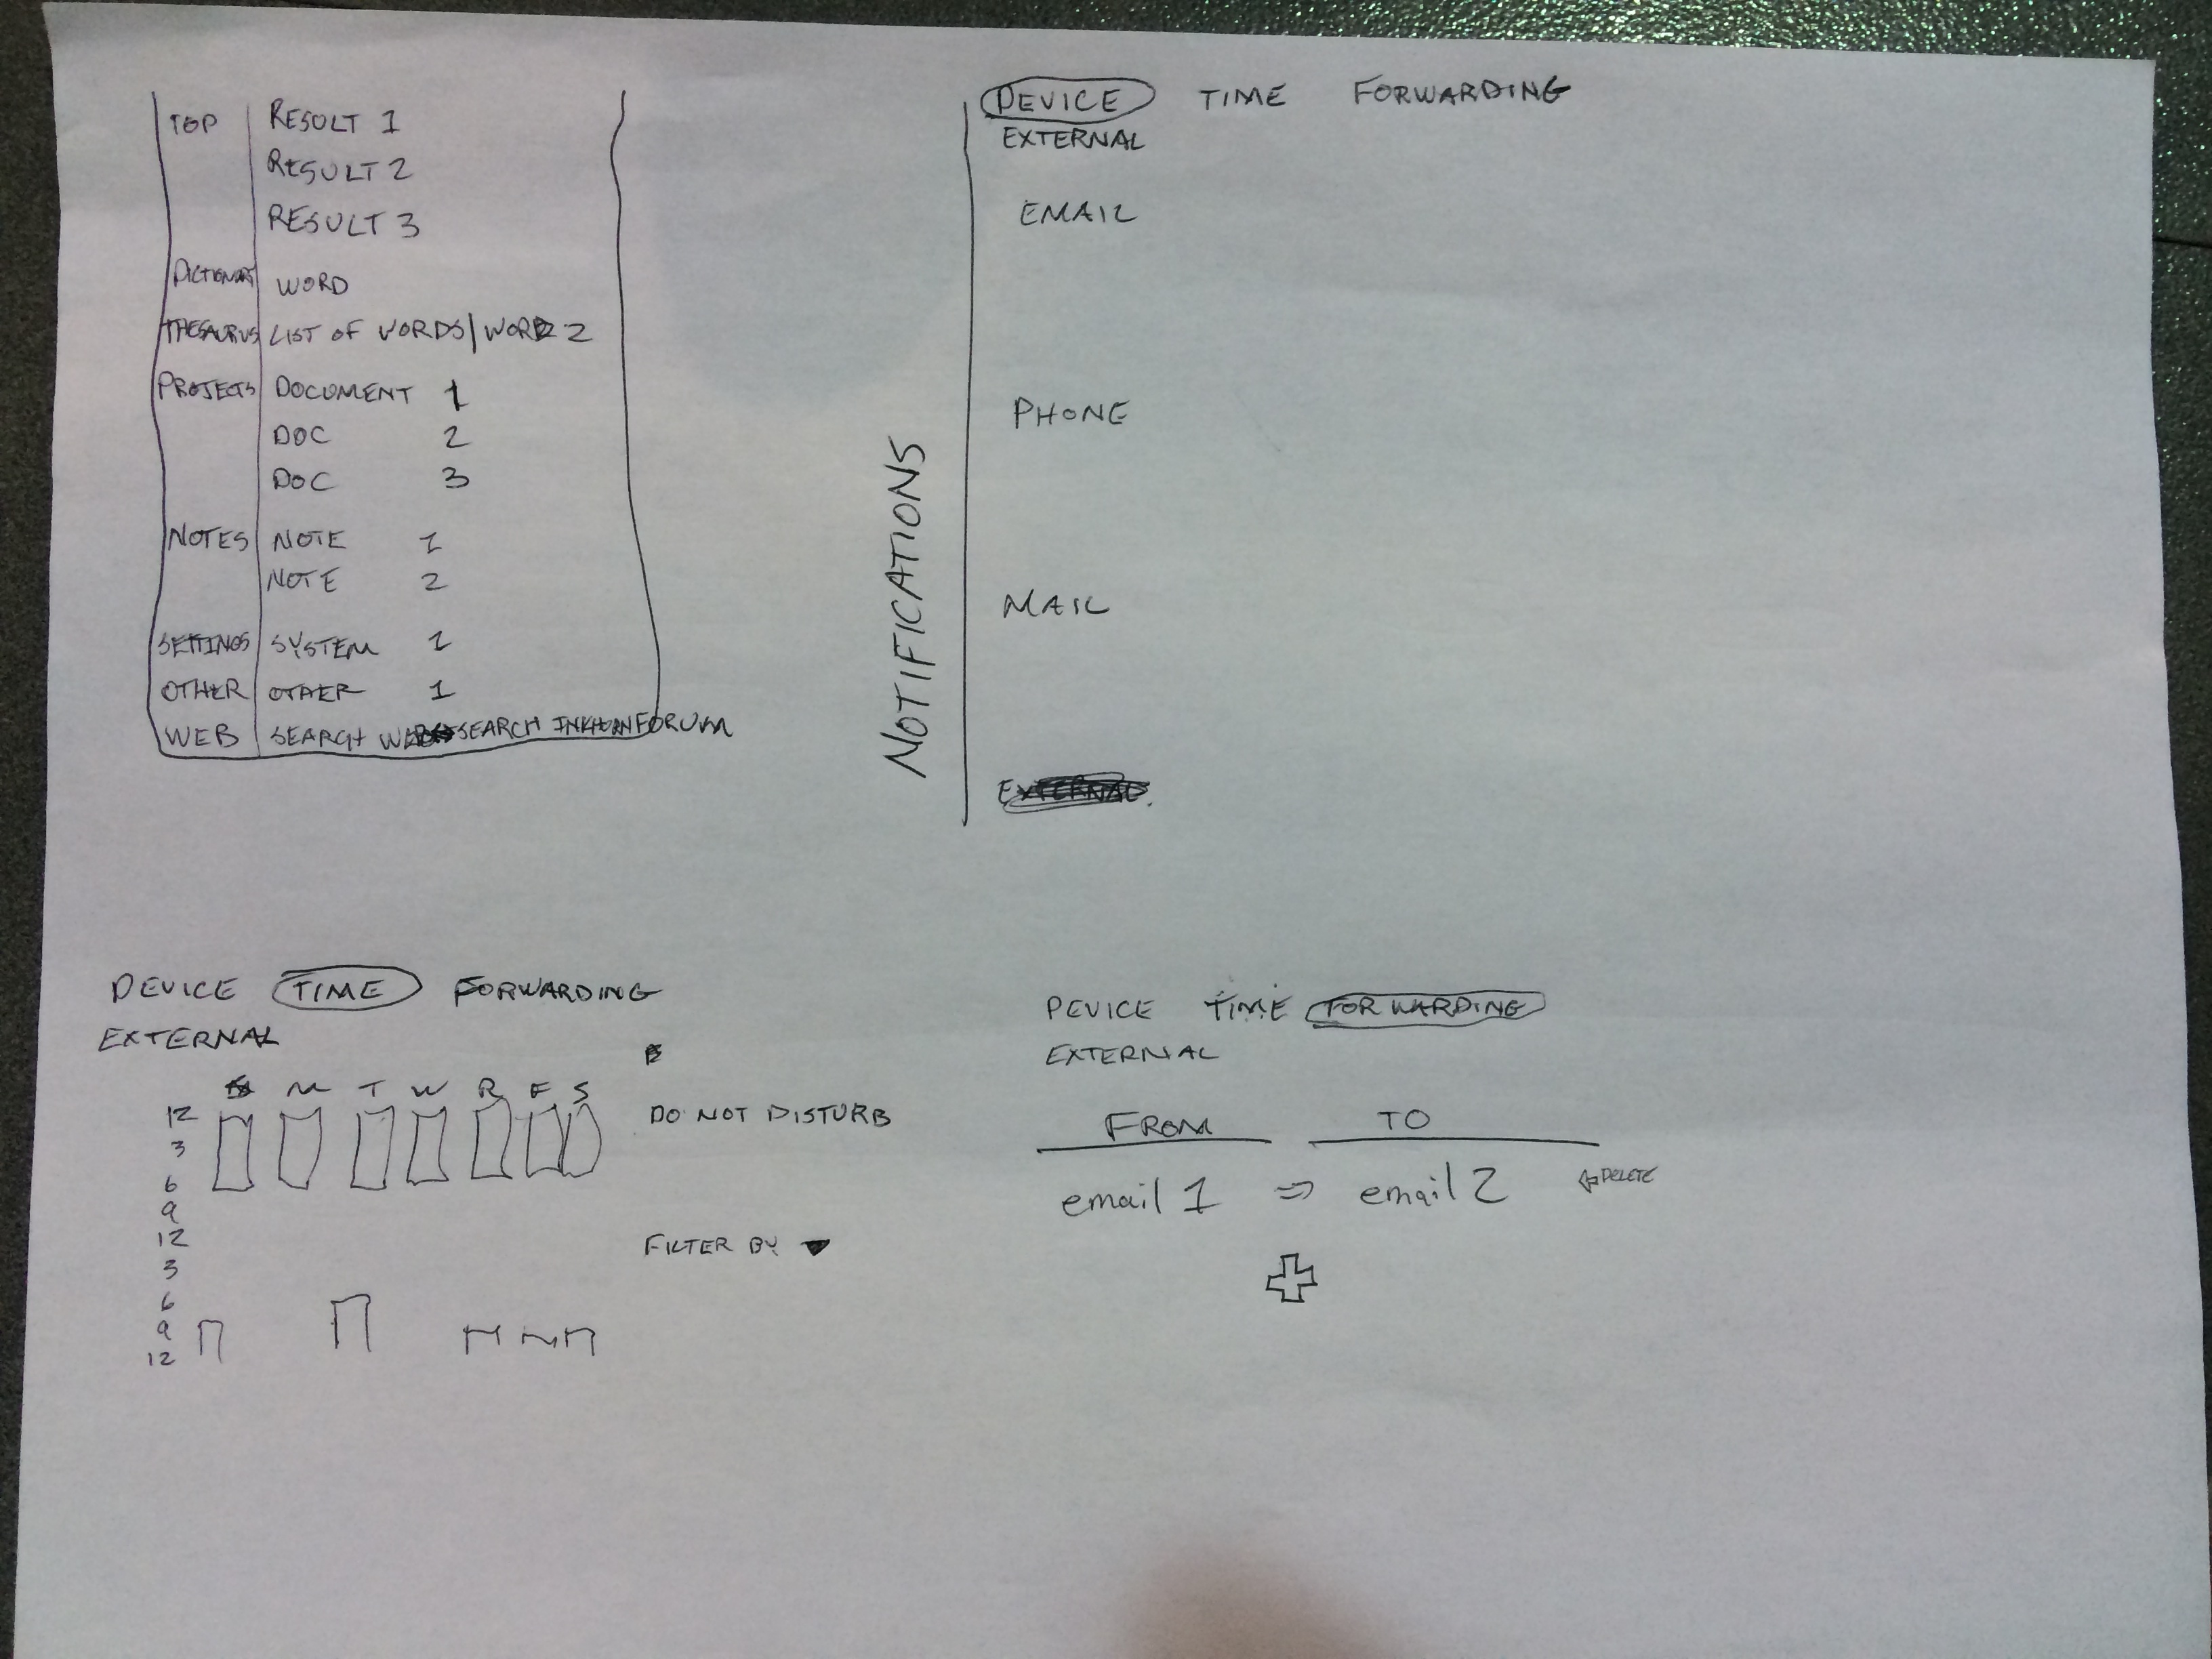 TOP RESULT 1
RESULT 2
RESULT 3
DICTIONARY WORD
THESAURUS LIST OF WORDS/WORD 2
PROJECTS DOCUMENT 1
DOC 2
DOC 3
NOTES NOTE 1
NOTE 2
SETTINGS SYSTEM 1
OTHER OTHER 1
WEB SEARCH WEB SEARCH FORUM
NOTIFICATIONS
DEVICE TIME FORWARDING
EXTERNAL
EMAIL
PHONE
MAIL
EXTERNAL
DEVICE TIME FORWARDING
EXTERNAL
M T W R F S
12
3
6
9
12
3
6
9
12
DO NOT DISTURB
FILTER BY
DEVICE TIME FORWARDING
EXTERNAL
FROM TO
email 1 ⇒ email 2 ⇐ DELETE